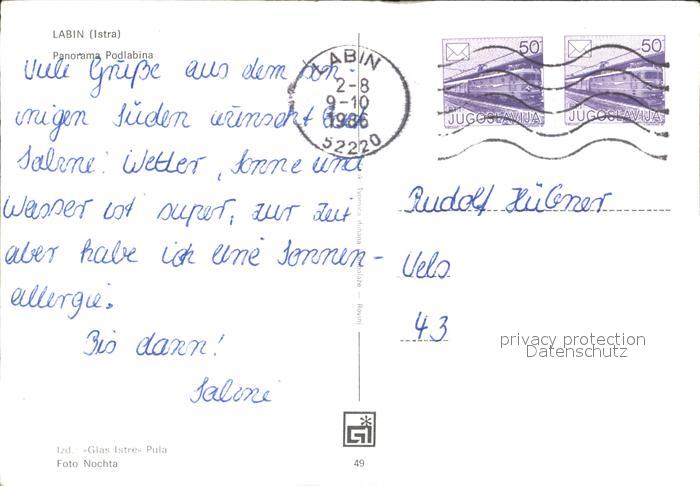 LABIN (Istra)
Panorama Podlabina
Viele Grüße aus dem son-
nigen Süden wünscht
Sabine. Wetter, Sonne und
Wasser ist super, zur Zeit
aber habe ich eine Sonnen-
allergie.
Bis dann!
Sabine
Izd. »Glas Istre« Pula
Foto Nochta
LABIN
2-8
9-10
1986
52220
50
JUGOSLAVIJA
50
JUGOSLAVIJA
Rudolf Hübner
43
privacy protection
Datenschutz
49